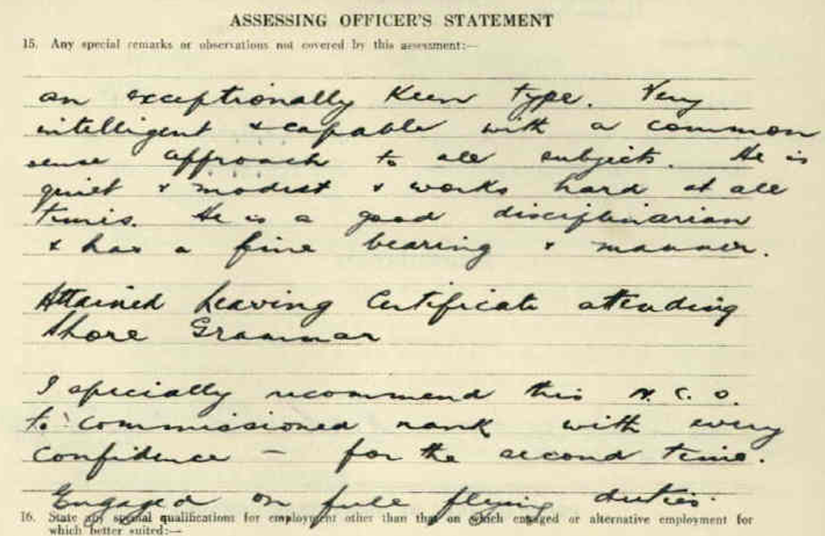 ASSESSING OFFICER'S STATEMENT
15. Any special remarks or observations not covered by this assessment:—
an exceptionally keen type. Very
intelligent & capable with a common
sense approach to all subjects. He is
quiet & modest & works hard at all
times. He is a good disciplinarian
& has a fine bearing & manner.
Attained Leaving Certificate attending
Shore Grammar
I specially recommend this N.C.O.
to commissioned rank with every
confidence – for the second time.
Engaged on full flying duties.
16. State any special qualifications for employment other than that on which engaged or alternative employment for
which better suited:—